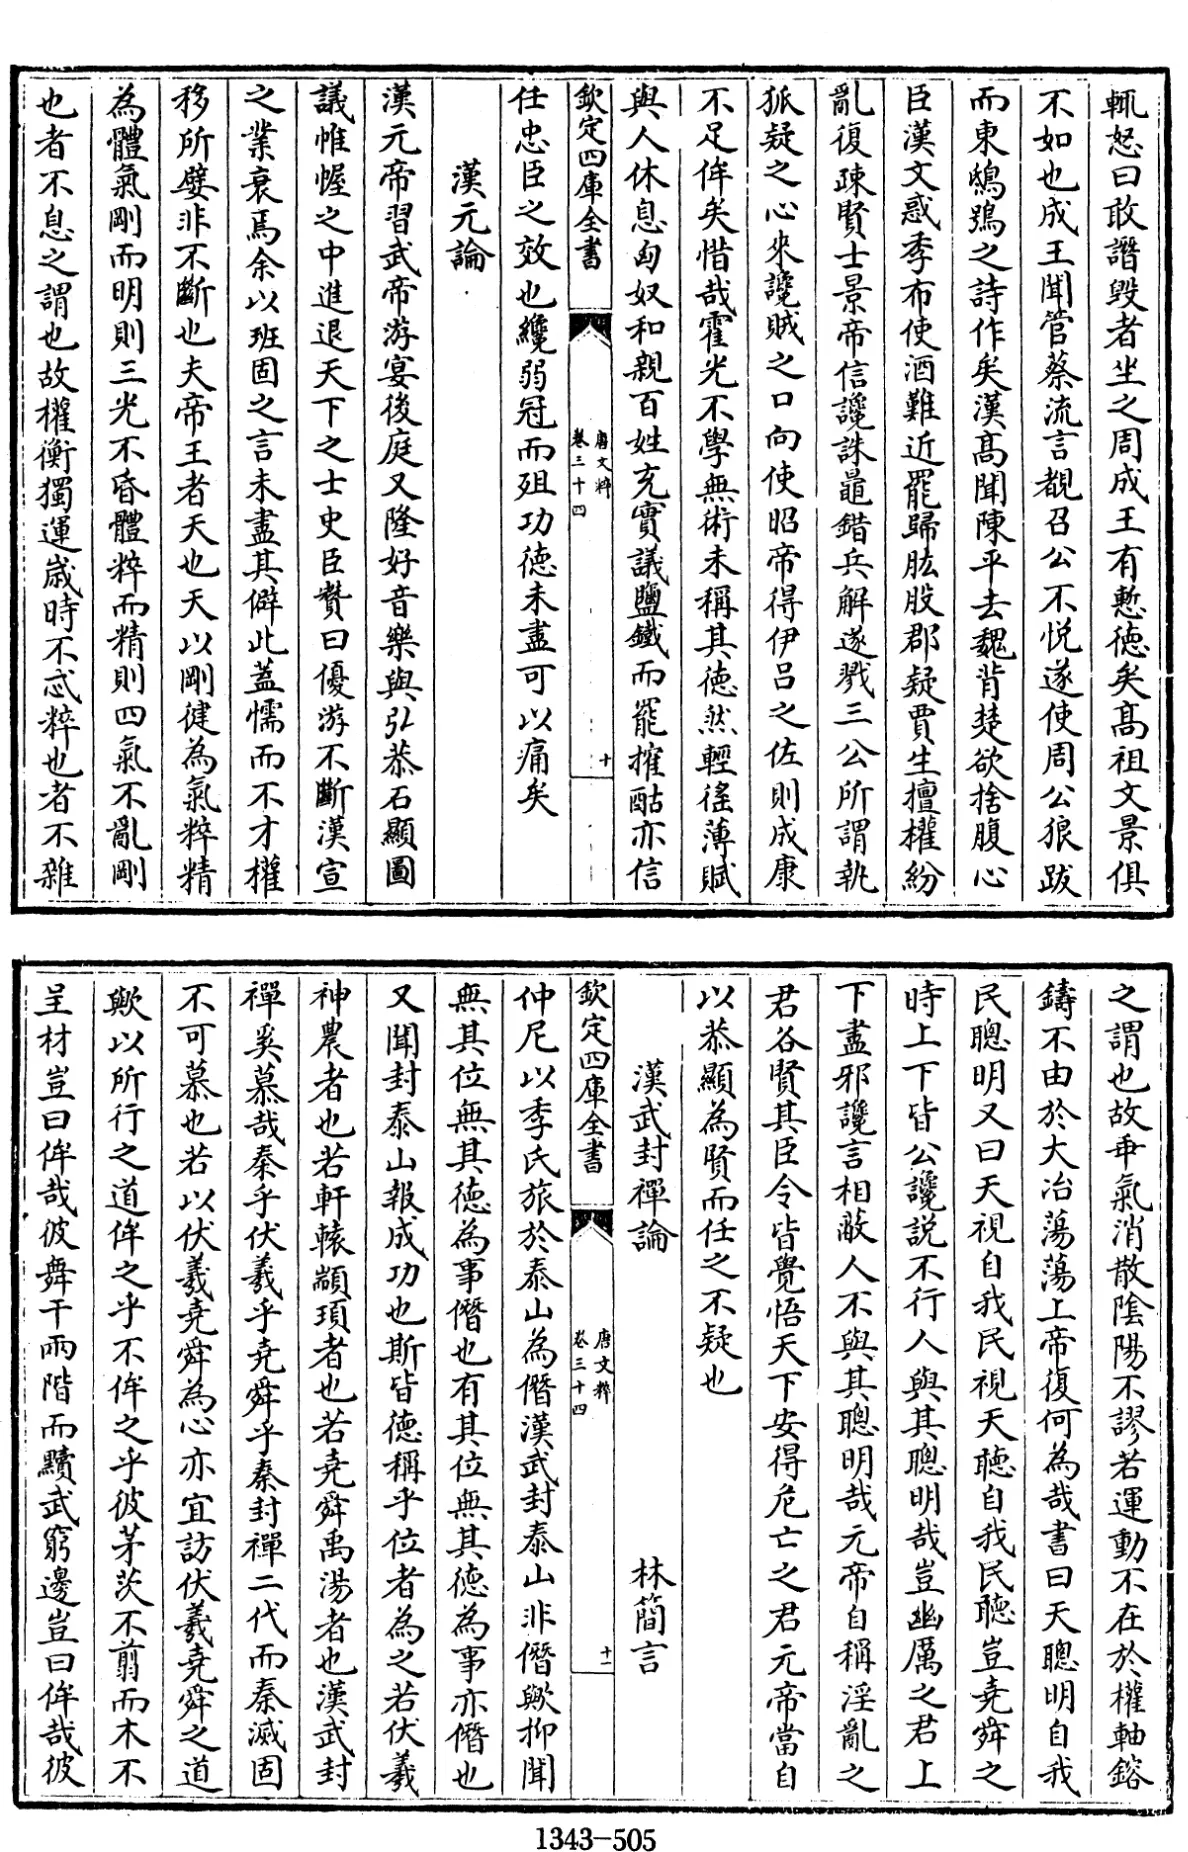 輒怒曰敢譖毀者坐之周成王有慙徳矣髙祖文景俱
不如也成王聞管蔡流言覩召公不悦遂使周公狼跋
而東鴟鴞之詩作矣漢髙聞陳平去魏背楚欲捨腹心
臣漢文惑季布使酒難近罷歸肱股郡疑賈生擅權紛
亂復疎賢士景帝信讒誅鼂錯兵解遂戮三公所謂執
狐疑之心來讒賊之口向使昭帝得伊吕之佐則成康
不足侔矣惜哉霍光不學無術未稱其徳然輕徭薄賦
與人休息匈奴和親百姓充實議鹽鐵而罷搉酤亦信
欽定四庫全書
唐文粹
卷三十四
十
任忠臣之效也纔弱冠而殂功徳未盡可以痛矣
漢元論
漢元帝習武帝游宴後庭又隆好音樂與弘恭石顯圖
議帷幄之中進退天下之士史臣贊曰優游不斷漢宣
之業衰焉余以班固之言未盡其僻此葢懦而不才權
移所嬖非不斷也夫帝王者天也天以剛健為氣粹精
為體氣剛而明則三光不昏體粹而精則四氣不亂剛
也者不息之謂也故權衡獨運嵗時不忒粹也者不雜
之謂也故乖氣消散隂陽不謬若運動不在於權軸鎔
鑄不由於大冶蕩蕩上帝復何為哉書曰天聰明自我
民聰明又曰天視自我民視天聴自我民聴豈堯舜之
時上下皆公讒説不行人與其聰明哉豈幽厲之君上
下盡邪讒言相蔽人不與其聰明哉元帝自稱淫亂之
君各賢其臣令皆覺悟天下安得危亡之君元帝當自
以恭顯為賢而任之不疑也
漢武封禪論
林簡言
欽定四庫全書
唐文粹
卷三十四
十一
仲尼以季氏旅於泰山為僭漢武封泰山非僭歟抑聞
無其位無其徳為事僭也有其位無其徳為事亦僭也
又聞封泰山報成功也斯皆徳稱乎位者為之若伏羲
神農者也若軒轅顓頊者也若堯舜禹湯者也漢武封
禪奚慕哉秦乎伏羲乎堯舜乎秦封禪二代而秦滅固
不可慕也若以伏羲堯舜為心亦宜訪伏羲堯舜之道
歟以所行之道侔之乎不侔之乎彼茅茨不翦而木不
呈材豈曰侔哉彼舞干兩階而黷武窮邊豈曰侔哉彼
1343-505